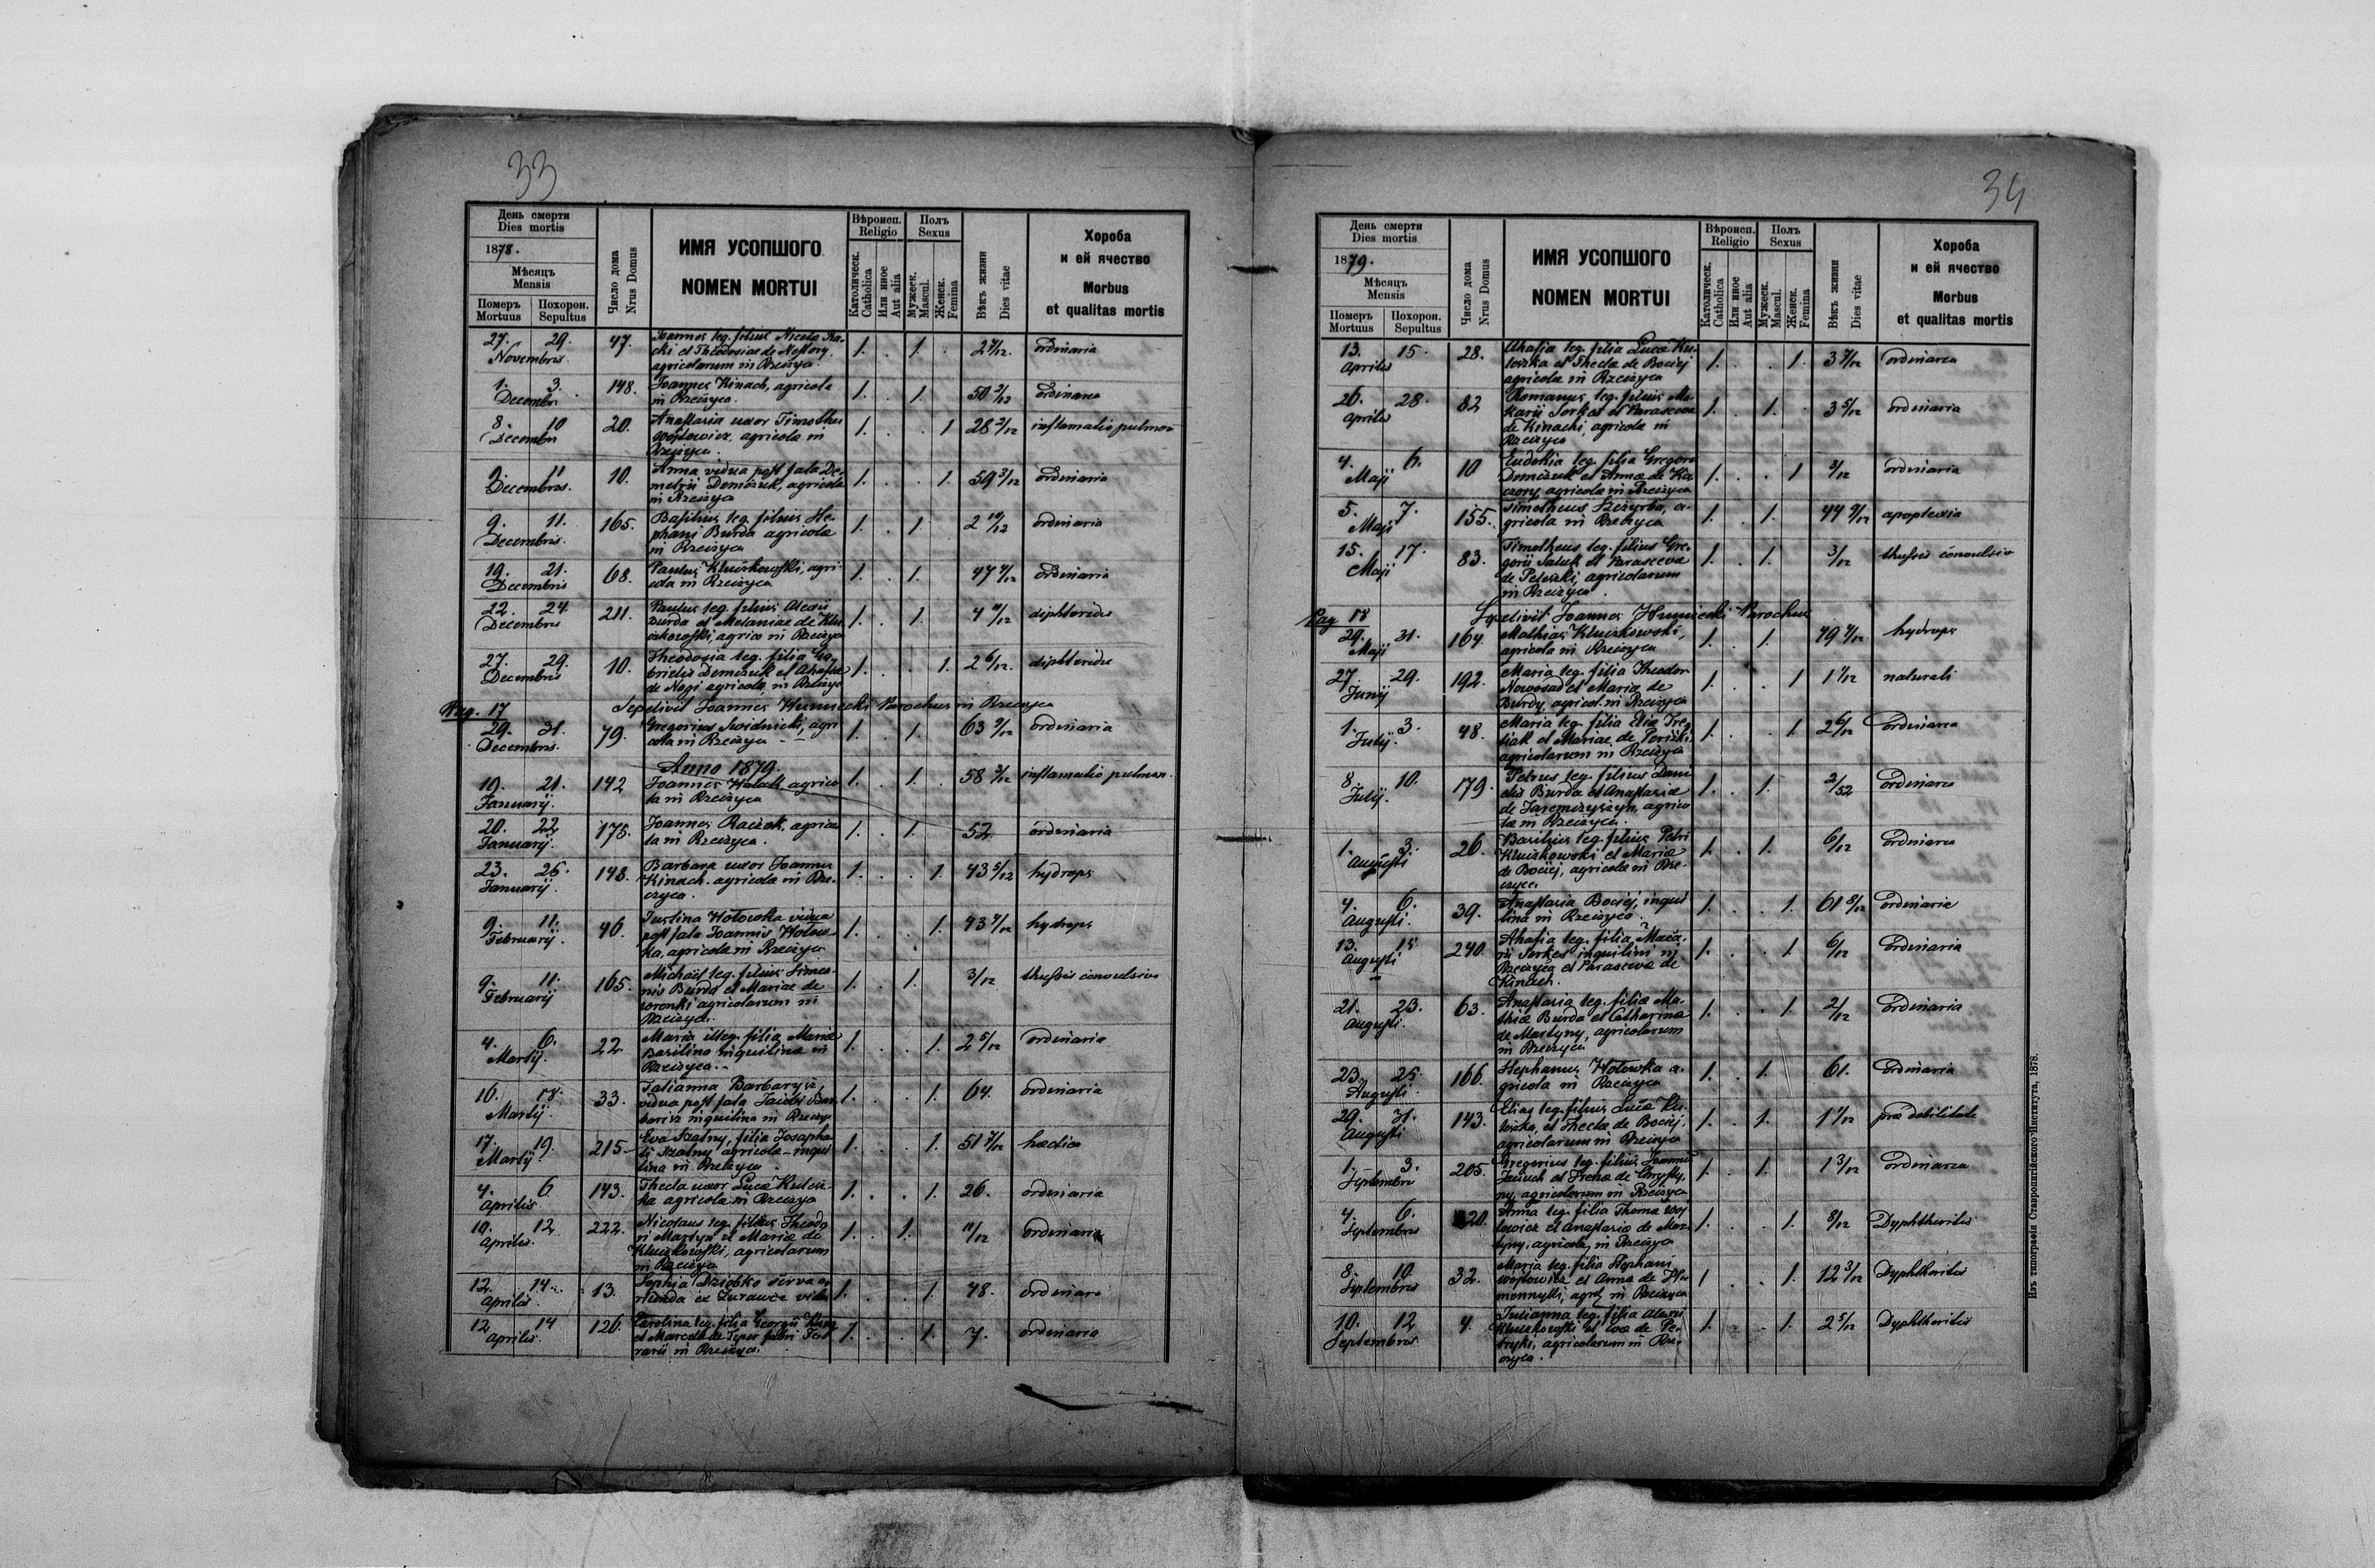 33
День смерти
Dies mortis
1878.
Мѣсяцъ
Mensis
Померъ Похорон.
Mortuus Sepultus
Число дома
Nrus Domus
ИМЯ УСОПШОГО
NOMEN MORTUI
Вѣроисп.
Religio
Католическ.
Catholica
Или иное
Aut alia
Полъ
Sexus
Мужеск.
Mascul.
Женск.
Femina
Вѣкъ жизни
Dies vitae
Хороба
и ей ячество
Morbus
et qualitas mortis
27. 29. Novembris. 47. Joannes leg. filius
et Theodosiae de
agricolarum in Rzeczyca.
1. 1. ordinaria
1. 3. Decembr. 148. Joannes Kinach, agricola
in Rzeczyca.
1. 1. 50 2/12 ordinaria
8. 10 Decembr 20. Anastasia uxor Timothei
Wojtowicz, agricola in
Rzeczyca.
1. 1 28 2/12 inflamatio pulmon
9. 11 Decembris. 10. Anna vidua post fata De-
metrii Demczuk, agricola
in Rzeczyca
1. 1. 59 3/12 ordinaria
9. 11. Decembris. 165. Basilius leg. filius Ste-
phani Burda agricolae
in Rzeczyca
1. 1. 2 10/12 ordinaria
19. 21. Decembris 68. Paulus Kluczkowski, agri-
cola in Rzeczyca
1. 1. ordinaria
22. 24. Decembris 211. Paulus leg. filius Alexii
Burda et Melaniae de Klu
czkowski, agrico in Rzeczyca
1. 1. diphteridis
27. 29. Decembris 10. Theodosia leg. filia Ga-
brielis Demczuk et Ahafia
de Nogi agricola, in Rzeczyc
1. 1. 2 6/12. diphteridis
Pag. 17 Sepelivit Joannes Humiecki Parochus in Rzeczyca
29. 31. Decembris. 79. Gregorius Swidnicki, agri
cola in Rzeczyca
1. 1. ordinaria
Anno 1879.
19. 21. Januarij. 142 Joannes agrico
la in Rzeczyca
1. 1. 58 3/12 inflamatio pulmon.
20. 22 Januarij. 175. Joannes Raczok, agrico
la in Rzeczyca.
1. 1. 52. ordinaria
23. 25. Januarij. 148. Barbara uxor Joannis
Kinach. agricolae in Rze-
czyca.
1. 1. 43 5/12 hydrops
9. 11. Februarij. 46. Justina Hołowka vidua
post fata Joannis Hołow-
ka, agricolae in Rzeczyca
1. 1. hydrops
9. 11. Februarij 165. Michael leg. filius Simeo-
nis Burda et Mariae de
Woronki agricolarum in
Rzeczyca.
1. 1. 3/12 thussis convulsiva
4. 6. Martij. 22. Maria illeg. filia Mariae
inquilinae in
Rzeczyca.
1. 1. 2 5/12 ordinaria
16. 18. Martij. 33. Tatianna
vidua post fata Jacobi
inquilina in Rzeczyca
1. 1. 64. ordinaria
17. 19. Martij. 215 Eva Szalny, filia Josapha
ti Szalny agricola-inqui
lina in Rzeczyca
1. 1. hectica
4. 6 Aprilis 143. Thecla uxor Lucae
agricola in Rzeczyca
1. 1. 26. ordinaria
10. 12 Aprilis. 222. Nicolaus leg. filius Theodo
ri Martyn et Mariae de
Kluczkowski, agricolarum
in Rzeczyca
1. 1. 11/12 ordinaria
12. 14. Aprilis. 13. Sophia Dziobko serva o-
riunda ex
1. 1. 48. ordinari
12 14 Aprilis. 126. Carolina leg. filia Georgii
et Marcellae de fabri Fer
rarii in Rzeczyca.
1. 1. 7. ordinaria
34
День смерти
Dies mortis
1879.
Мѣсяцъ
Mensis
Померъ Похорон.
Mortuus Sepultus
Число дома
Nrus Domus
ИМЯ УСОПШОГО
NOMEN MORTUI
Вѣроисп.
Religio
Католическ.
Catholica
Или иное
Aut alia
Полъ
Sexus
Мужеск.
Mascul.
Женск.
Femina
Вѣкъ жизни
Dies vitae
Хороба
и ей ячество
Morbus
et qualitas mortis
13. 15. Aprilis 28. Ahafia leg. filia Lucae
et Theclae de Bociej
agricolae in Rzeczyca
1. 1. ordinaria
26. 28. Aprilis 82 Romanus leg. filius Ma-
karii Serkes et Parasceva
de Kinach, agricolae in
Rzeczyca
1. 1. 3 5/12 ordinaria
4. 6. Maji 10 Eudokia leg. filia Gregorii
Demczuk et Annae de
agricolae in Rzeczyca
1. 1 3/12 ordinaria
5. 7. Maji 155. Timotheus Szczyrba, a-
gricola in Rzeczyca
1. 1. apoplexia
15. 17. Maji 83. Timotheus leg. filius Gre-
gorii et Parasceva
de agricolarum
in Rzeczyca.
1. 1. 3/12 thussis convulsiv
Pag 18 Sepelivit Joannes Humiecki Parochus
29. 31. Maji 164. Mathias Kluczkowski,
agricola in Rzeczyca
1. 1. hydrops
27. 29. Junij 192. Maria leg. filia Theodor
Nowosad et Mariae de
Burdy, agricol. in Rzeczyca
1. 1 1 1/12 naturali
1. 3. Julij. 48. Maria leg. filia Eliae
et Mariae de
agricolarum in Rzeczyca
1. 1 2 6/12 ordinaria
8. 10. Julij. 179. Petrus leg. filius Dani
elis Burda et Anastasiae
de agrico
lae in Rzeczyca.
1. 1. 2/52 ordinaria
1. 3. Augusti 26. Basilius leg. filius Petri
Kluczkowski et Mariae
de Bociej, agricolae in Rze-
czyca.
1. 1. 6/12 ordinaria
4. 6. Augusti. 39. Anastasia Bociej, inqui
lina in Rzeczyca.
1. 1. 61 8/12 ordinaria
13. 15 Augusti 240. Ahafia leg. filia Maca-
rii Serkes inquilini in
Rzeczyca et Parasceva de
Kinach.
1. 1 6/12 ordinaria
21. 23. Augusti. 63. Anastasia leg. filia Ma-
thiae Burda et Catharinae
de Martyny, agricolarum
in Rzeczyca
1. 1 2/12 ordinaria
23. 25 Augusti 166. Stephanus Hołowka a-
gricola in Rzeczyca
1. 1. 61. ordinaria
29. 31. Augusti 143. Elias leg. filius Lucae
et Theclae de Bociej,
agricolarum in Rzeczyca
1. 1. 1 1/12 prae debilitate
1. 3. Septembr 205. Gregorius leg. filius Joannis
et Irenae de
agricolarum in Rzeczyca
1. 1. 1 3/12 ordinaria
4. 6. Septembris 20. Anna leg. filia Thomae Woj
towicz et Anastasiae de Mar-
tyny, agricolae in Rzeczyca
1. 1. 8/12 Dyphtheritis
8. 10 Septembris 32. Maria leg. filia Stephani
Wojtowicz et Anna de
agrol in Rzeczyca
1 1. 12 3/12 Dyphtheritis
10. 12 Septembris 4. Julianna leg. filia Alexii
Kluczkowski et Evae de
agricolarum in Rze-
czyca.
1. 1. 2 5/12 Dyphtheritis
Изъ типографіи Ставропигійского Института, 1878.